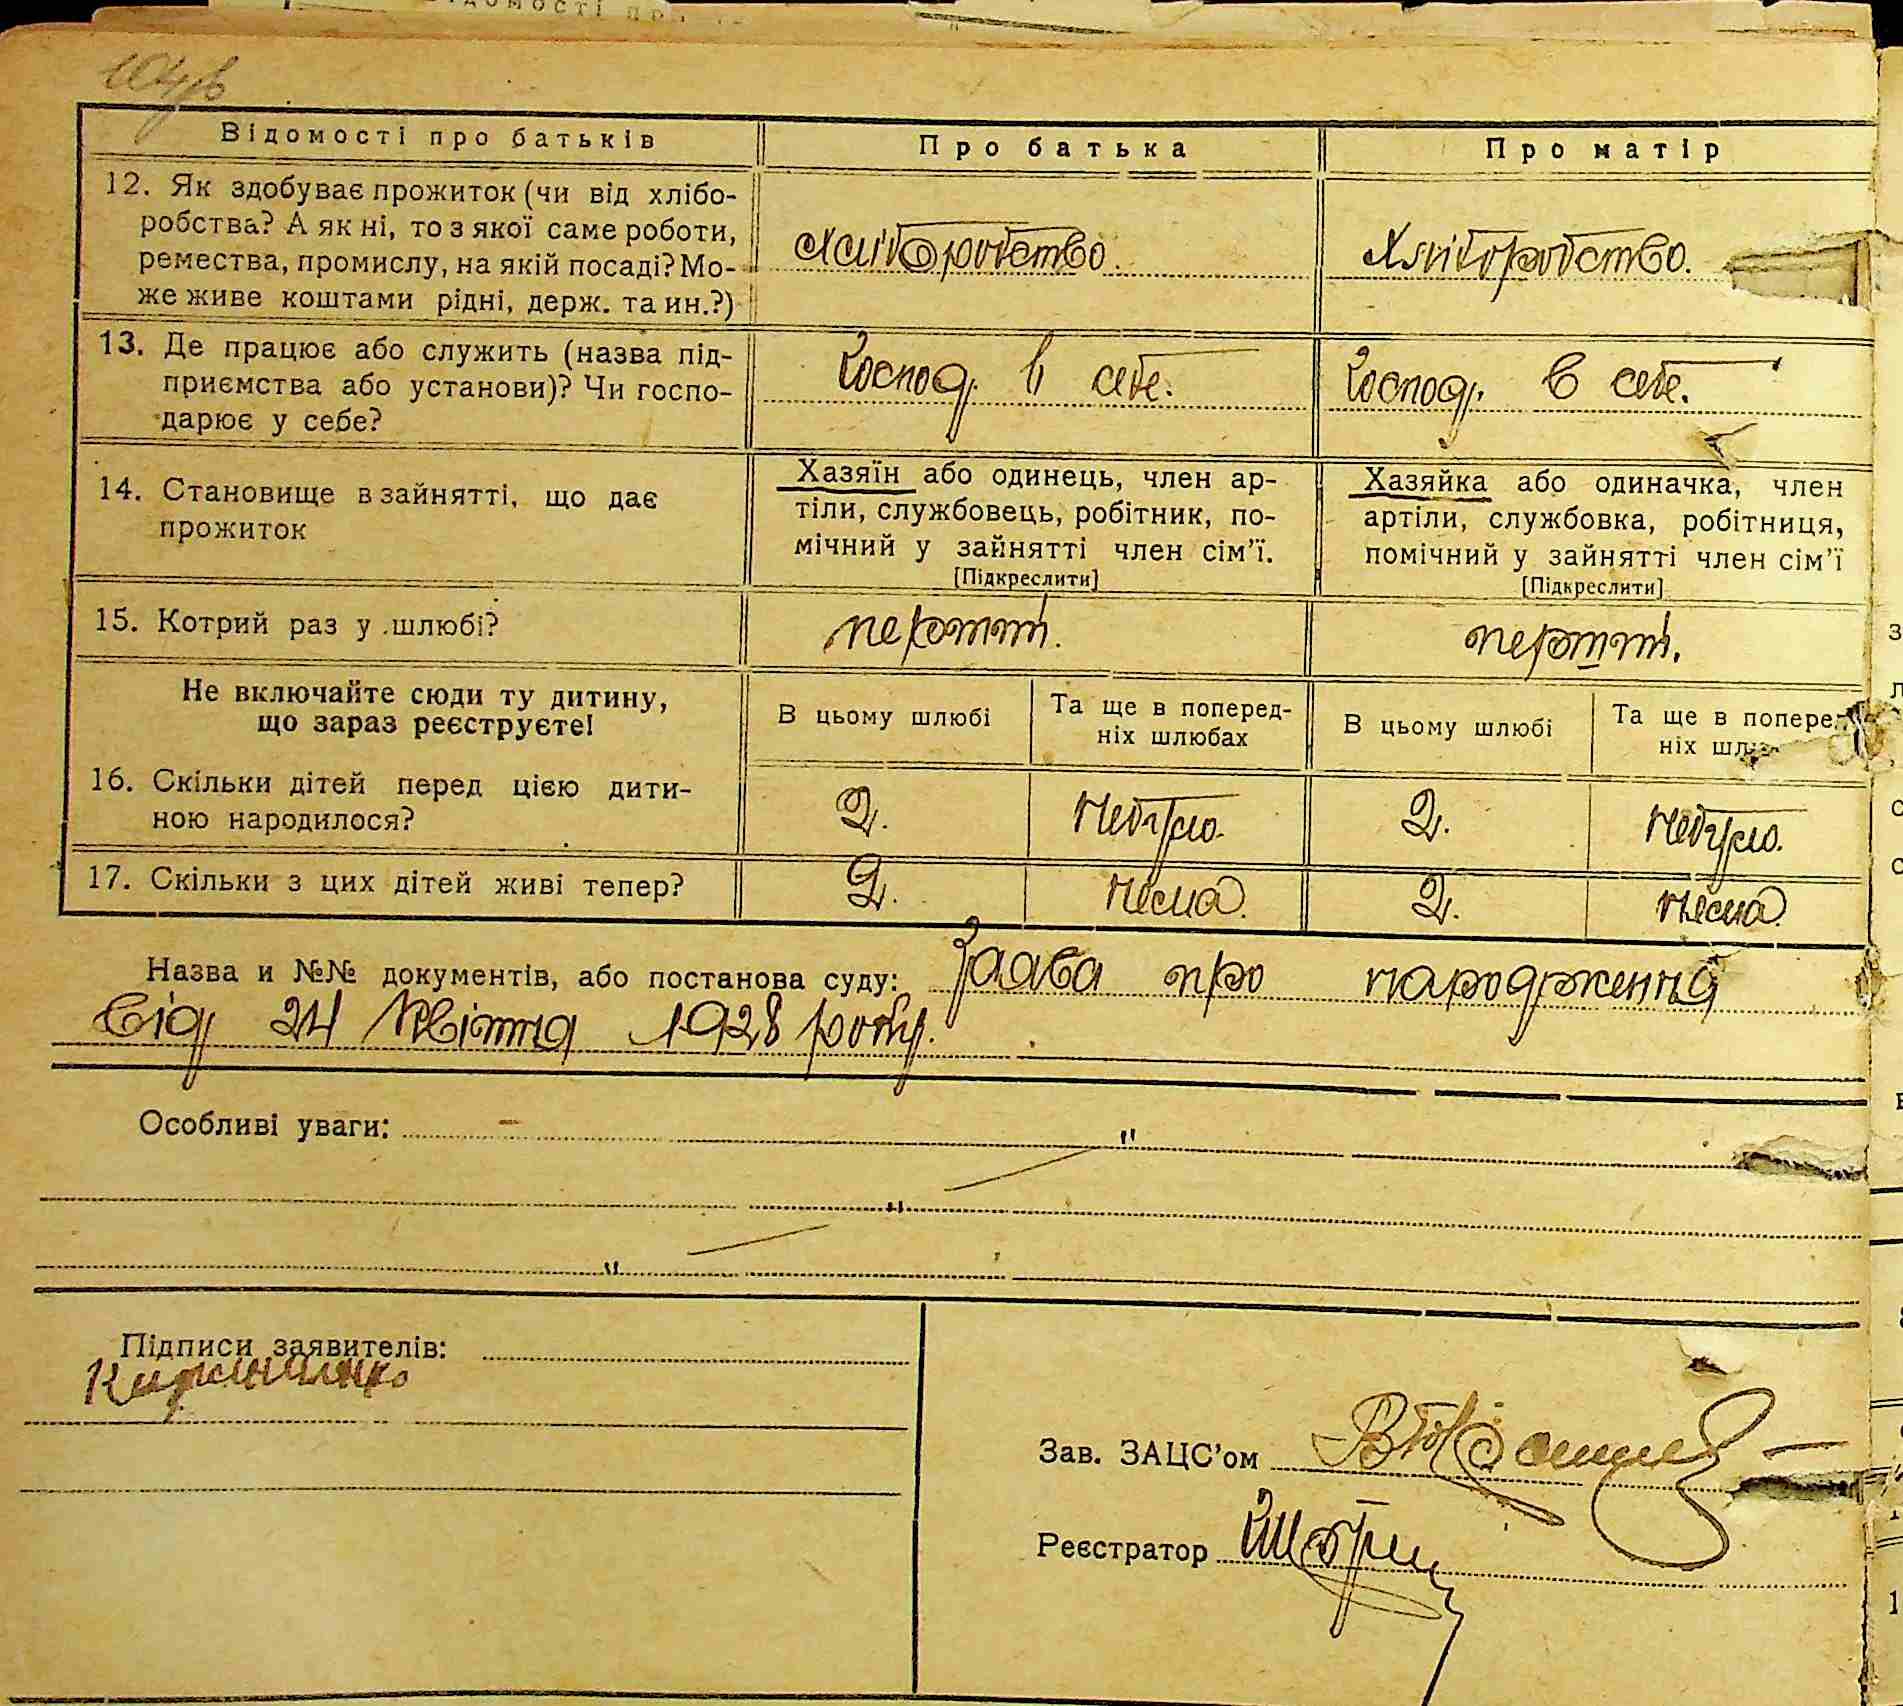 Відомості про батьків
Про батька
Про матір
12. Як здобуває прожиток (чи від хлібо-
робства? А як ні, то з якої саме роботи,
ремества, промислу, на якій посаді? Мо-
же живе коштами рідні, держ. та ин.?)
Хліборобство.
Хліборобство.
13. Де працює або служить (назва під-
приємства або установи)? Чи госпо-
дарює у себе?
Господ. в себе.
Господ. в себе.
14. Становище в зайнятті, що дає
прожиток
Хазяїн або одинець, член ар-
тіли, службовець, робітник, по-
мічний у зайнятті член сім’ї.
[Підкреслити]
Хазяйка або одиначка, член
артіли, службовка, робітниця,
помічний у зайнятті член сім’ї
[Підкреслити]
15. Котрий раз у шлюбі?
Не включайте сюди ту дитину,
що зараз реєструєте!
В цьому шлюбі
Та ще в поперед-
ніх шлюбах
В цьому шлюбі
Та ще в попере
ніх шлю
16. Скільки дітей перед цією дити-
ною народилося?
2.
Небуло.
2.
Небуло.
17. Скільки з цих дітей живі тепер?
2.
Нема.
2.
Нема.
Назва и №№ документів, або постанова суду: Заява про народження
від 24 Квітня 1928 року.
Особливі уваги: - "
"
"
Підписи заявителів:
Зав. ЗАЦС’ом
Реєстратор